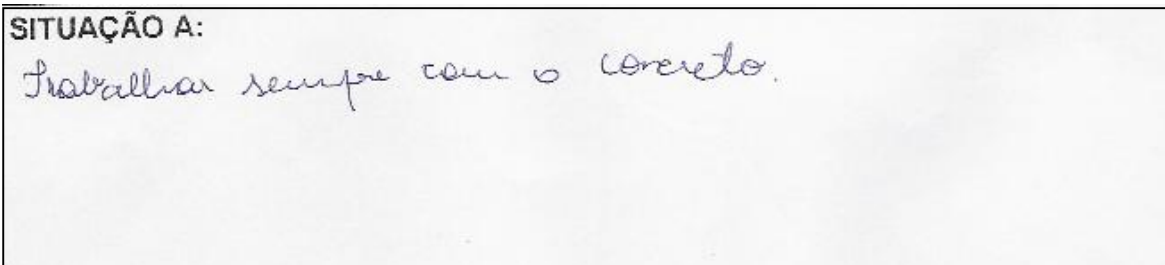 SITUAÇÃO A:
Trabalhar sempre com o concreto.